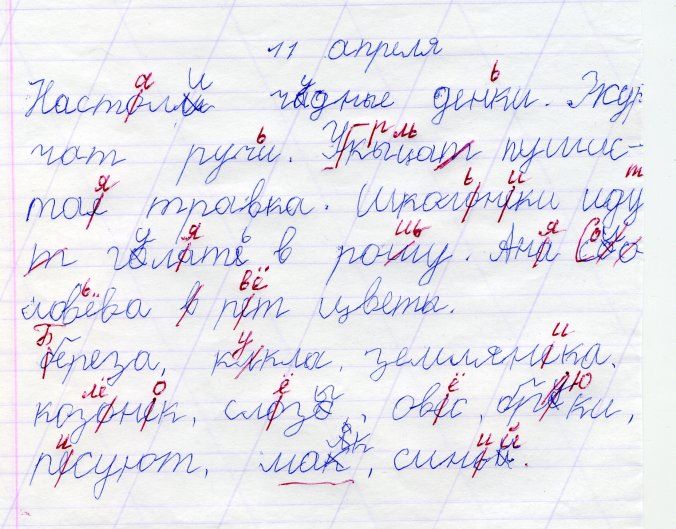 11 апреля
Настали чудные деньки. Жур-
чат ручьи. Укрыльцат пушис-
тая травка. Школьники идут
т гулять в рошу. Аня Со
ловьёва рвёт цветы.
Береза, кукла, земляника,
козлёнок, слёзы, овёс, брюки,
рисуют, маяк, синий.